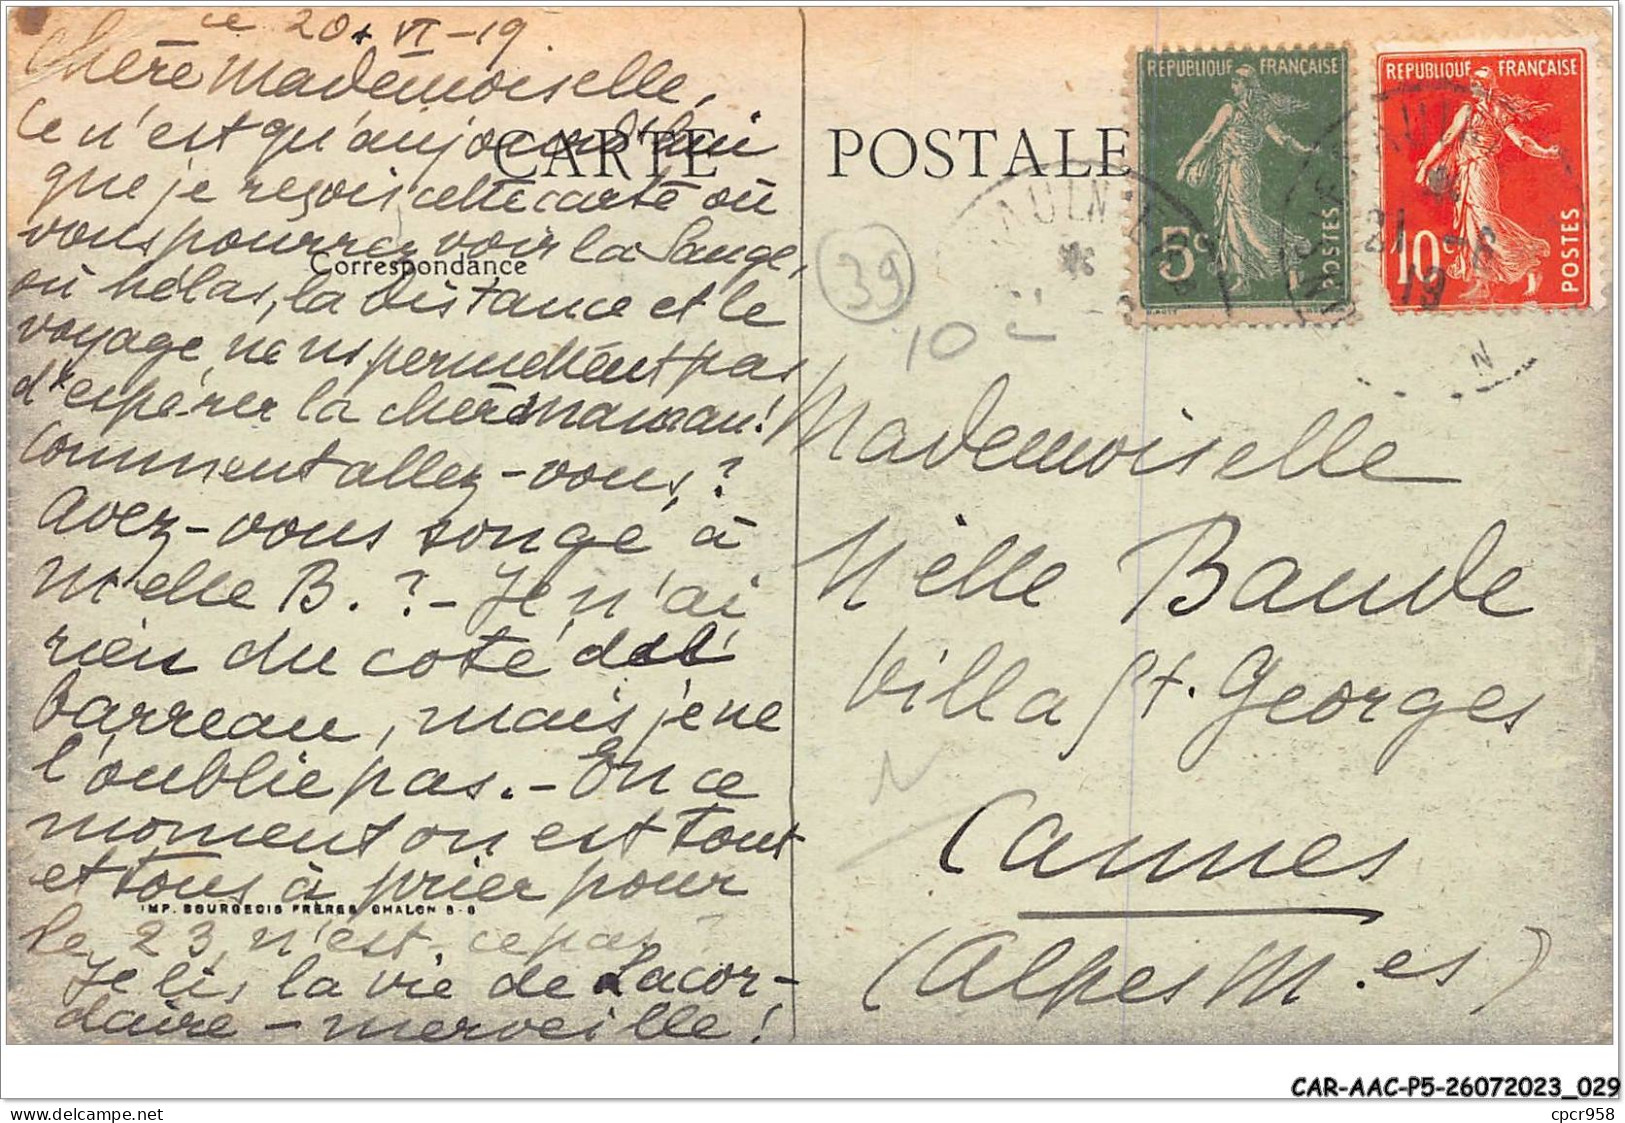 ce 20 VI - 19.
Chère Mademoiselle,
Ce n'est qu'aujourd'hui
que je reçois cette carte où
vous pourrez voir la Sauge,
où hélas, la distance et le
voyage, ne ns permettent pas
d'espérer la chère maman!
Comment allez-vous?
Avez-vous songé à
Melle B. ? - Je n'ai
rien du coté del
barreau, mais je ne
l'oublie pas. - En ce
moment on est tout
et tous à prier pour
le 23, n'est-ce pas ?
Je lis la vie de Lacor-
daire - merveille!
CARTE POSTALE
Correspondance
IMP. BOURGEOIS FRÈRES CHALON S-S
REPUBLIQUE FRANÇAISE
5c
POSTES
REPUBLIQUE FRANÇAISE
10c
POSTES
21 - 6
19
39
10
Mademoiselle
Melle Baude
Villa St. Georges
Cannes
(Alpes M.es)
CAR-AAC-P5-26072023_029
cpcr958